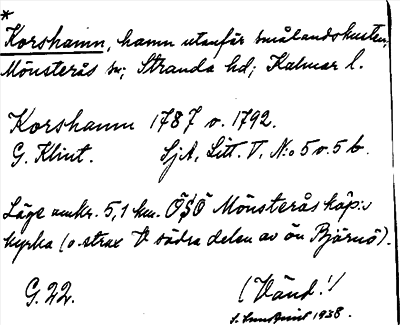 *
Korshamn, hamn utanför smålandskusten;
Mönsterås sn; Stranda hd; Kalmar l.
Korshamn 1787 o. 1792.
G. Klint. SjA, Litt. V, No 5 o. 5 b.
Läge omkr. 5,1 km. ÖSÖ Mönsterås köp:s
kyrka (o. strax V södra delen av ön Björnö).
G. 22. (Vänd!)
1938.